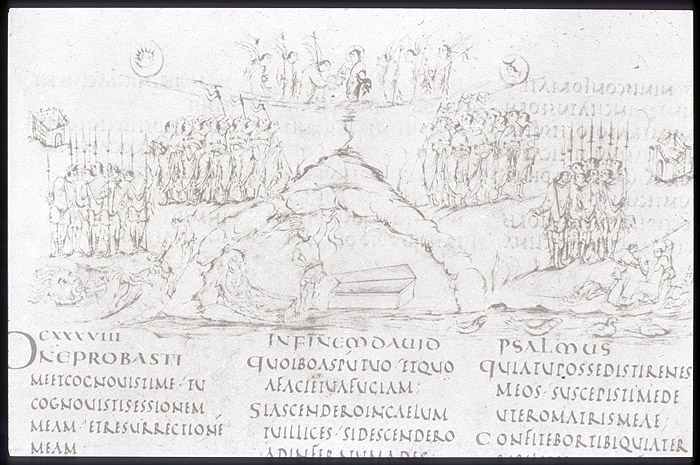 CXXXVIII INFINEMDAUID PSALMUS
DNEPROBASTI
MEETCOGNOUISTIME· TU
COGNOUISTISESSIONEM
MEAM· ETRESURRECTIONĒ
MEAM·
QUOIBOASPŪTUO· ETQUO
AFACIETUAFUGIAM·
SIASCENDEROINCAELUM
TUILLICES· SIDESCENDERO
ADINFERNUMADES·
QUIATUPOSSEDISTIRENES
MEOS· SUSCEPISTIMEDE
UTEROMATRISMEAE;
CONFITEBORTIBIQUIATER